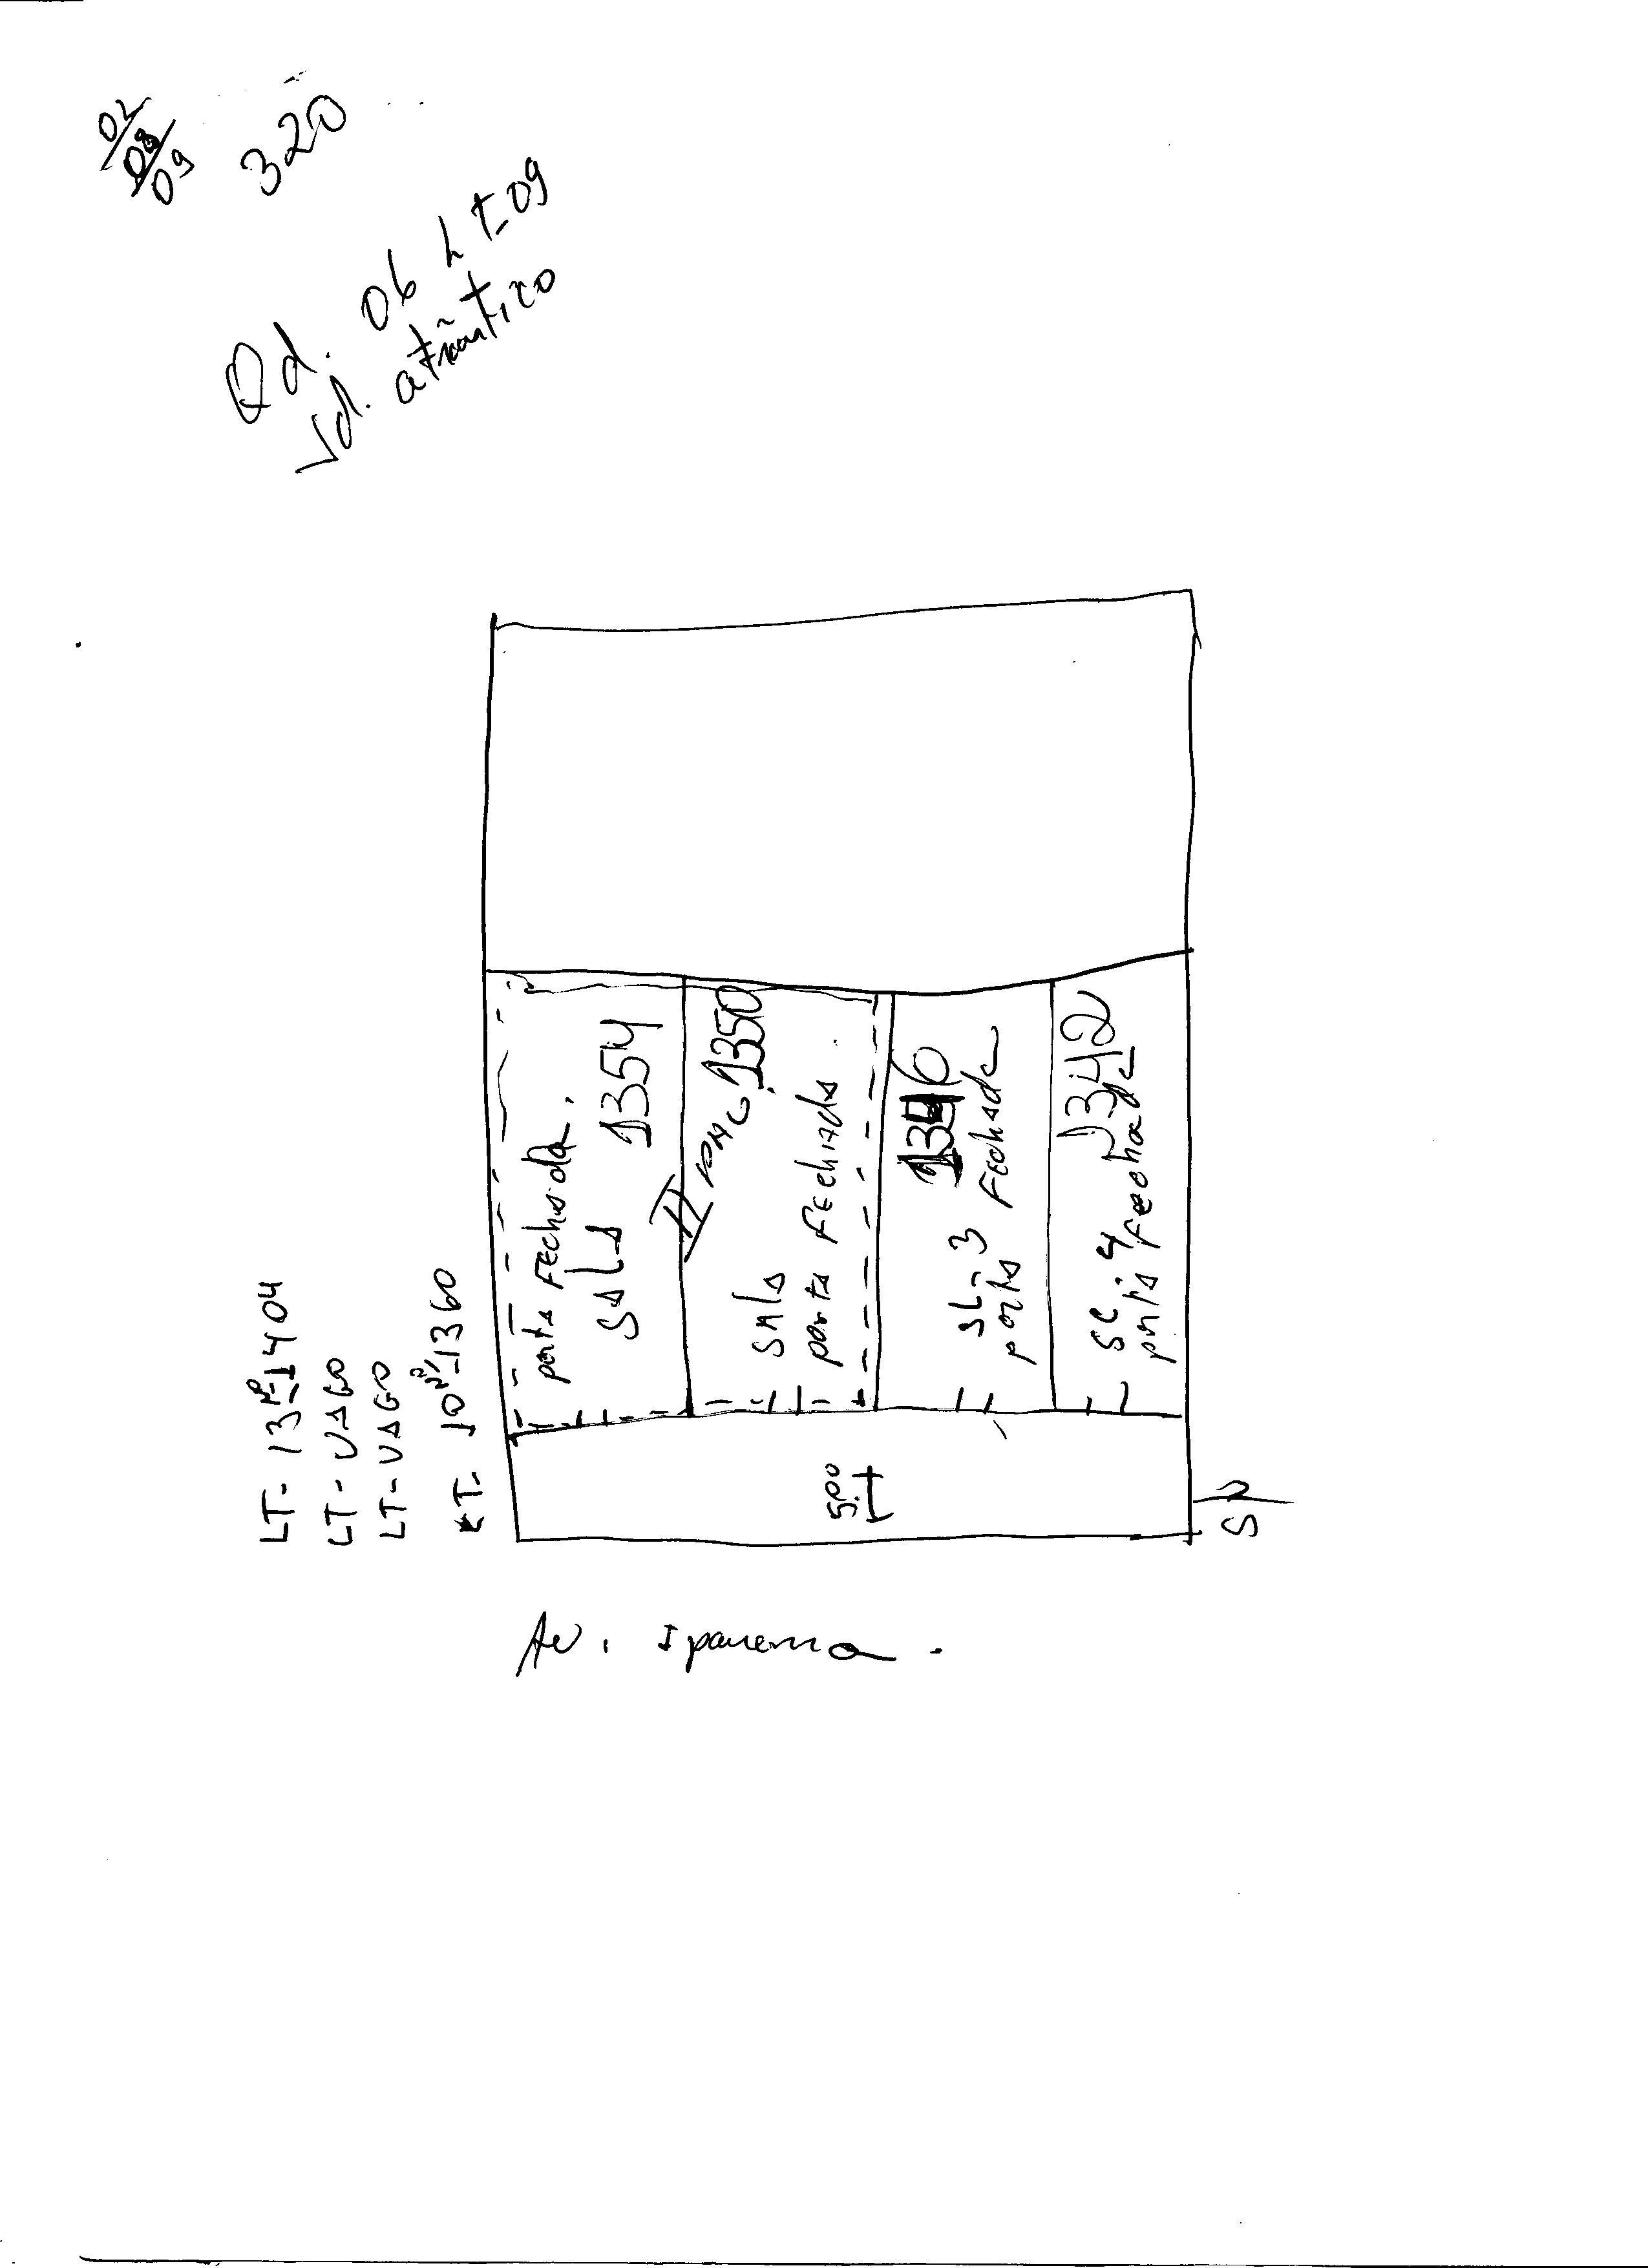 02/08/09
320
Qd. 06 LT-09
Jd. atlântico
LT-13 Nº-1404
LT-VAGO
LT-VAGO
LT-10 Nº-1360
porta Fechada.
SALA 1354
1350
SALA
porta FECHADA
1346
SL-3
porta Fechada
1342
SL-4
porta fechada
5.00
SN
Av. Ipanema.